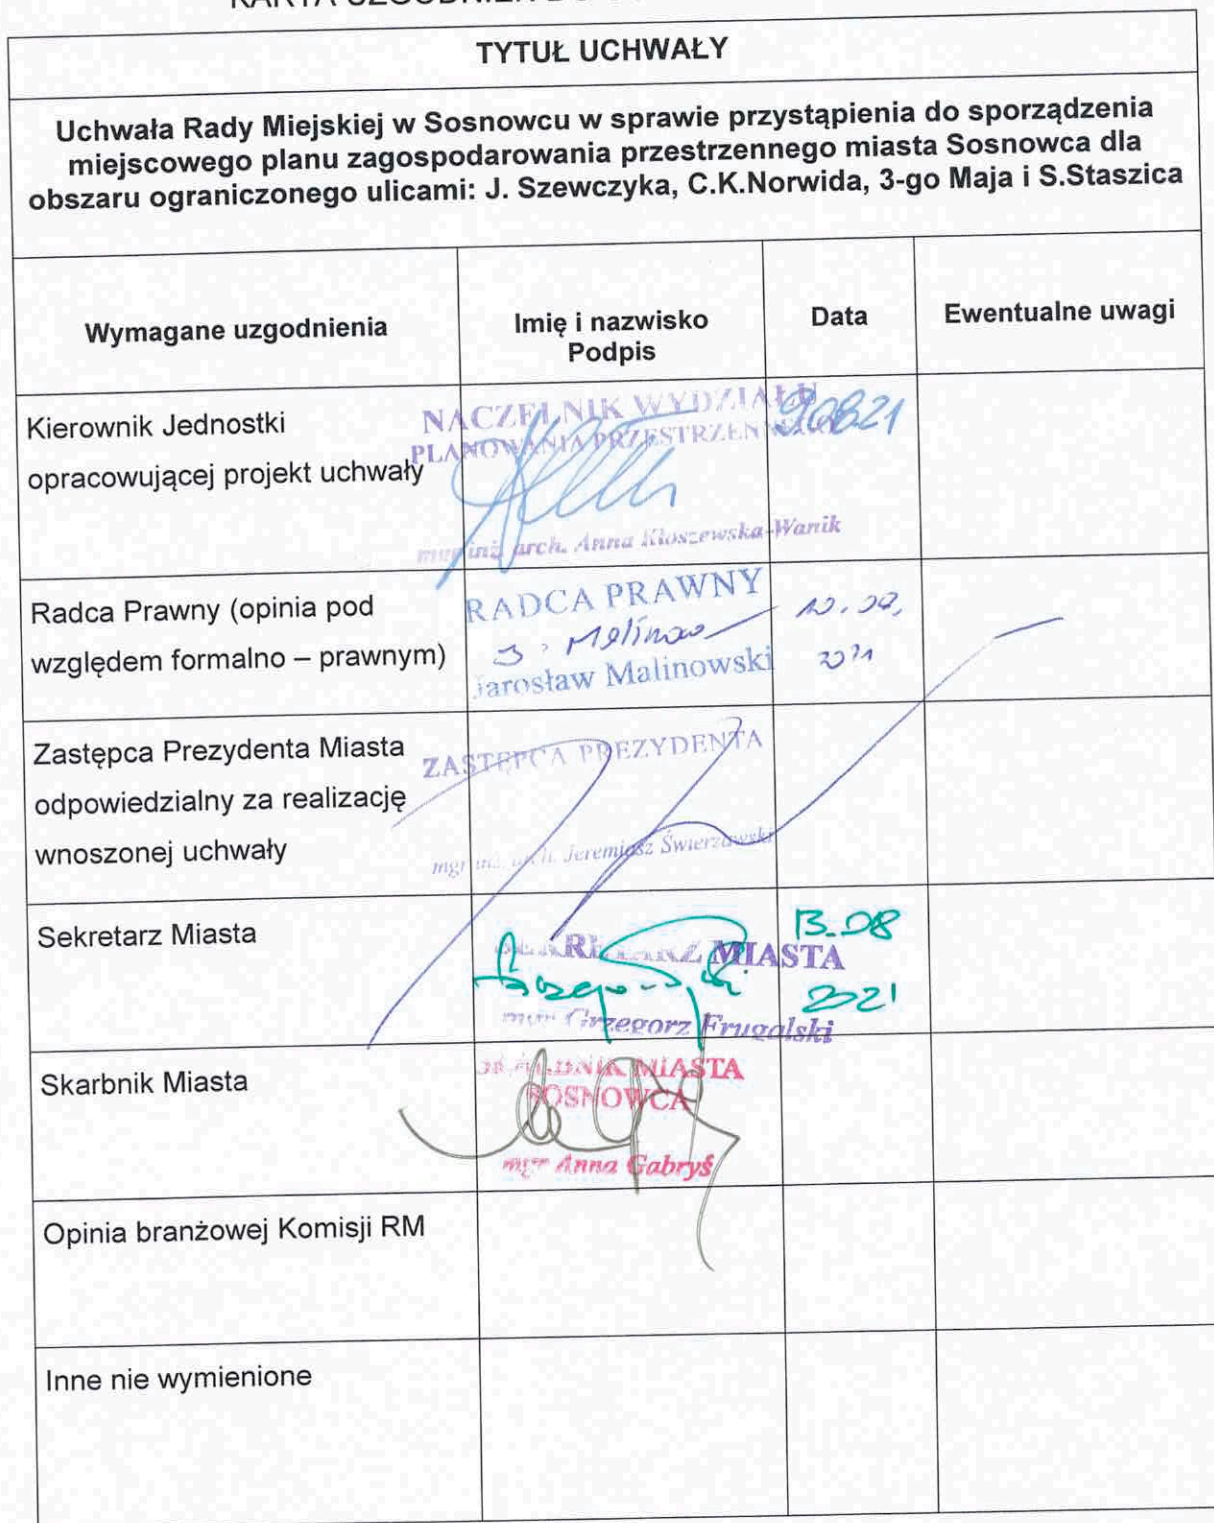 TYTUŁ UCHWAŁY
Uchwała Rady Miejskiej w Sosnowcu w sprawie przystąpienia do sporządzenia
miejscowego planu zagospodarowania przestrzennego miasta Sosnowca dla
obszaru ograniczonego ulicami: J. Szewczyka, C.K.Norwida, 3-go Maja i S.Staszica
Wymagane uzgodnienia
Imię i nazwisko
Podpis
Data
Ewentualne uwagi
Kierownik Jednostki
opracowującej projekt uchwały
NACZELNIK WYDZIAŁU
PLANOWANIA PRZESTRZENNEGO
mgr inż. arch. Anna Kłoszewska-Wanik
Radca Prawny (opinia pod
względem formalno – prawnym)
RADCA PRAWNY
Jarosław Malinowski
Zastępca Prezydenta Miasta
odpowiedzialny za realizację
wnoszonej uchwały
ZASTĘPCA PREZYDENTA
mgr inż. arch. Jeremiasz Świerzawski
Sekretarz Miasta
SEKRETARZ MIASTA
mgr Grzegorz Frugalski
13.08
2021
Skarbnik Miasta
SKARBNIK MIASTA
SOSNOWCA
mgr Anna Gabryś
Opinia branżowej Komisji RM
Inne nie wymienione